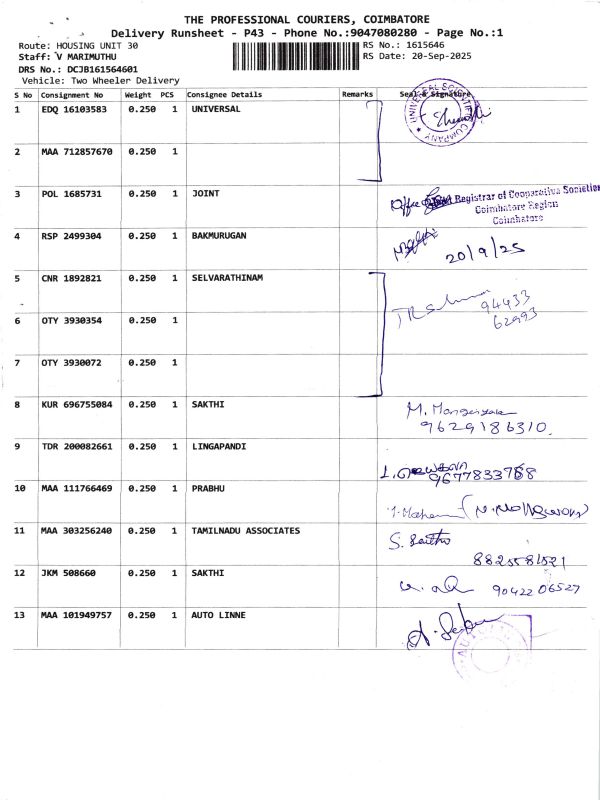 THE PROFESSIONAL COURIERS, COIMBATORE
Delivery Runsheet - P43 - Phone No.:9047080280 - Page No.:1
Route: HOUSING UNIT 30 RS No.: 1615646
Staff: V MARIMUTHU RS Date: 20-Sep-2025
DRS No.: DCJB161564601
Vehicle: Two Wheeler Delivery
S No Consignment No Weight PCS Consignee Details Remarks Seal & Signature
1 EDQ 16103583 0.250 1 UNIVERSAL
UNIVERSAL SCIENTIFIC COMPANY
2 MAA 712857670 0.250 1
3 POL 1685731 0.250 1 JOINT
Registrar of Cooperative Societies
Coimbatore Region
Coimbatore
4 RSP 2499304 0.250 1 BAKMURUGAN
20/9/25
5 CNR 1892821 0.250 1 SELVARATHINAM
94433
62993
6 OTY 3930354 0.250 1
7 OTY 3930072 0.250 1
8 KUR 696755084 0.250 1 SAKTHI
9629186310.
9 TDR 200082661 0.250 1 LINGAPANDI
10 MAA 111766469 0.250 1 PRABHU
11 MAA 303256240 0.250 1 TAMILNADU ASSOCIATES
12 JKM 508660 0.250 1 SAKTHI
9042206527
13 MAA 101949757 0.250 1 AUTO LINNE